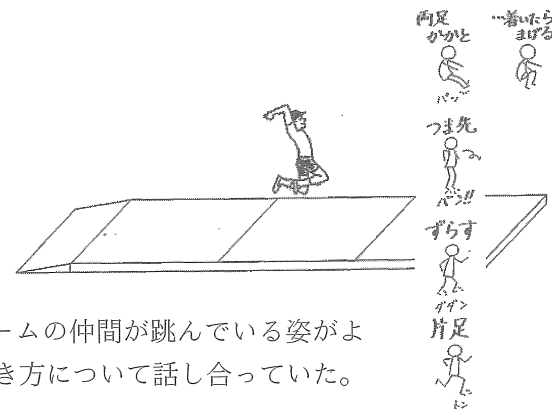 両足
かかと
パッ
…着いたら
まげる
つま先
バーン!!
ずらす
ダダン
片足
トン
ームの仲間が跳んでいる姿がよ
き方について話し合っていた。